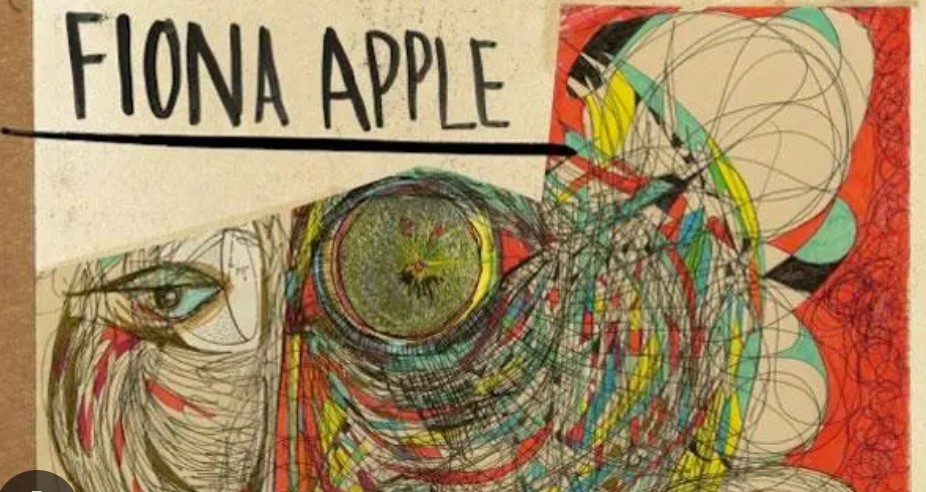 FIONA APPLE